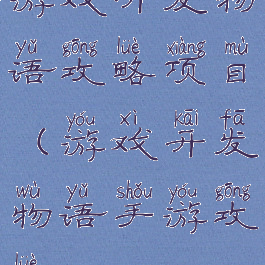 游戏开发物
yǔ gōng lüè xiàng mù
语攻略项目
yóu xì kāi fā
(游戏开发
wù yǔ shǒu yóu gōng
物语手游攻
lüè